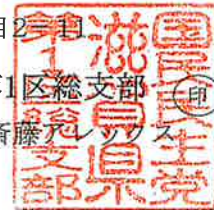 目2－11
1区総支部 ㊞
斎藤アレックス
国民民主党
滋賀県
第一区総支部